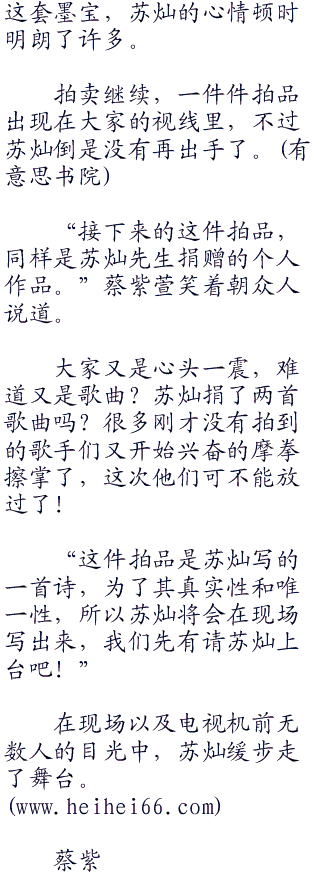 这套墨宝，苏灿的心情顿时
明朗了许多。
拍卖继续，一件件拍品
出现在大家的视线里，不过
苏灿倒是没有再出手了。(有
意思书院)
“接下来的这件拍品，
同样是苏灿先生捐赠的个人
作品。”蔡紫萱笑着朝众人
说道。
大家又是心头一震，难
道又是歌曲？苏灿捐了两首
歌曲吗？很多刚才没有拍到
的歌手们又开始兴奋的摩拳
擦掌了，这次他们可不能放
过了！
“这件拍品是苏灿写的
一首诗，为了其真实性和唯
一性，所以苏灿将会在现场
写出来，我们先有请苏灿上
台吧！”
在现场以及电视机前无
数人的目光中，苏灿缓步走
了舞台。
(www.heihei66.com)
蔡紫